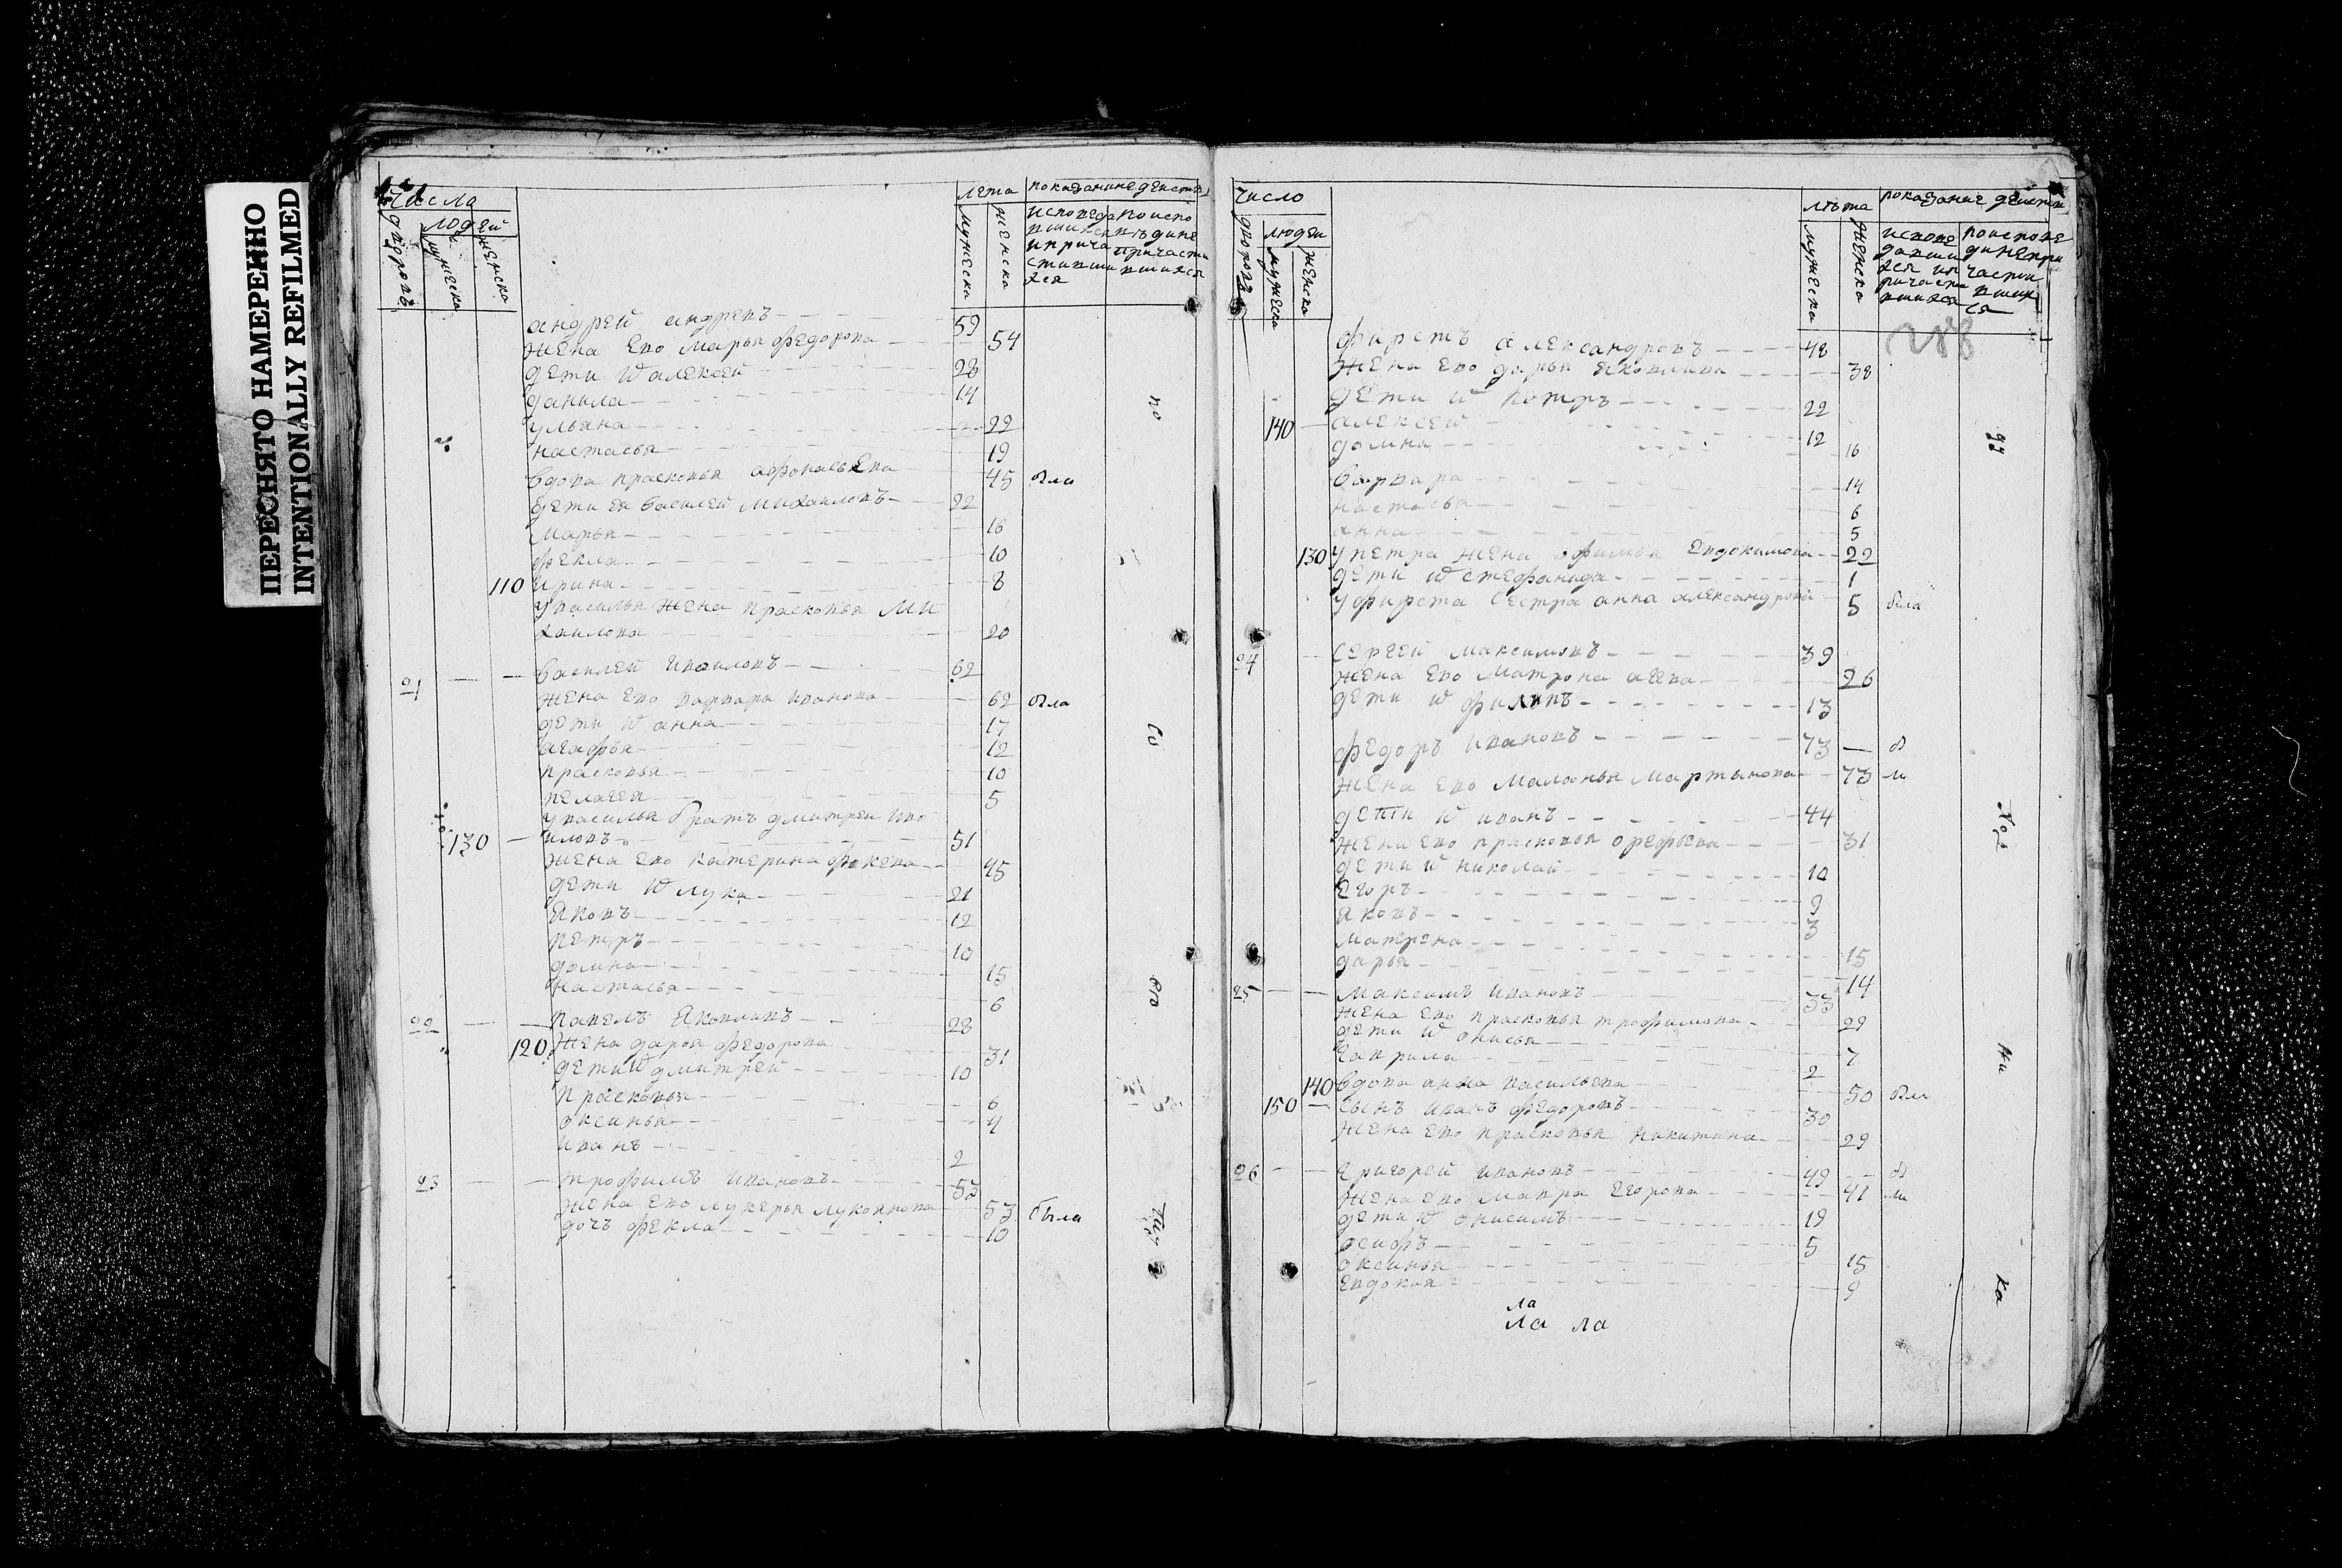 ПЕРЕСНЯТО НАМЕРЕННО
INTENTIONALLY REFILMED
Числа
людей
дворовъ
мужеска
женска
лета
мужеска
женска
показание действа
андрей андревъ 59
жена ево марья федорова 54
дети их алексей 28
данила 14
ульяна 22
настасья 19
вдова прасковья афонасьева 45 была
дети ея василей михаиловъ 22
марья 16
фекла 10
110 ирина 8
у василья жена прасковья ми
хаилова 20
21 василей иваиловъ 62
жена ево варвара иванова 62 была
дети их анна 17
агафья 12
прасковья 10
пелагея 5
у василья братъ дмитреи ива
130 иловъ 51
жена ево катерина фокева 45
дети их лука 21
яковъ 12
петръ 10
домна 15
настасья 6
22 павелъ яковливъ 28
120 жена дарья федорова 31
дети их дмитрей 10
прасковья 6
оксинья 4
иванъ 2
23 трофимъ ивановъ 53
жена ево лукерья лукоянова 53 была
дочъ фекла 10
число
людеи
дворовъ
мужеска
женска
лѣта
мужеска
женска
показание действа
фирстъ александровъ 48
жена ево дарья яковлива 38
дети их петръ 22
140 алексей 12
домна 16
варвара 14
настасья 6
анна 5
130 у петра жена офимья евдокимова 22
дети их стефанида 1
у фирста сестра анна александрова 5 была
24 сергей максимовъ 39
жена ево матрона агева 26
дети их филипъ 13
федоръ ивановъ 73 бы
жена ево маланья мартынова 73 ли
дети их иванъ 44
жена ево прасковья орефьева 31
дети их николай 10
егоръ 9
яковъ 3
матрена 15
дарья 14
25 максимъ ивановъ 33
жена ево прасковья трофимова 29
дети их онисья 7
гаврила 2
140 вдова анна васильева 50 была
150 сынъ иванъ федоровъ 30
жена ево прасковья никитина 29
26 григорей ивановъ 49 бы
жена ево мавра егорова 41 ли
дети их онисимъ 19
осифъ 5
оксинья 15
евдокия 9
ла
ла ла